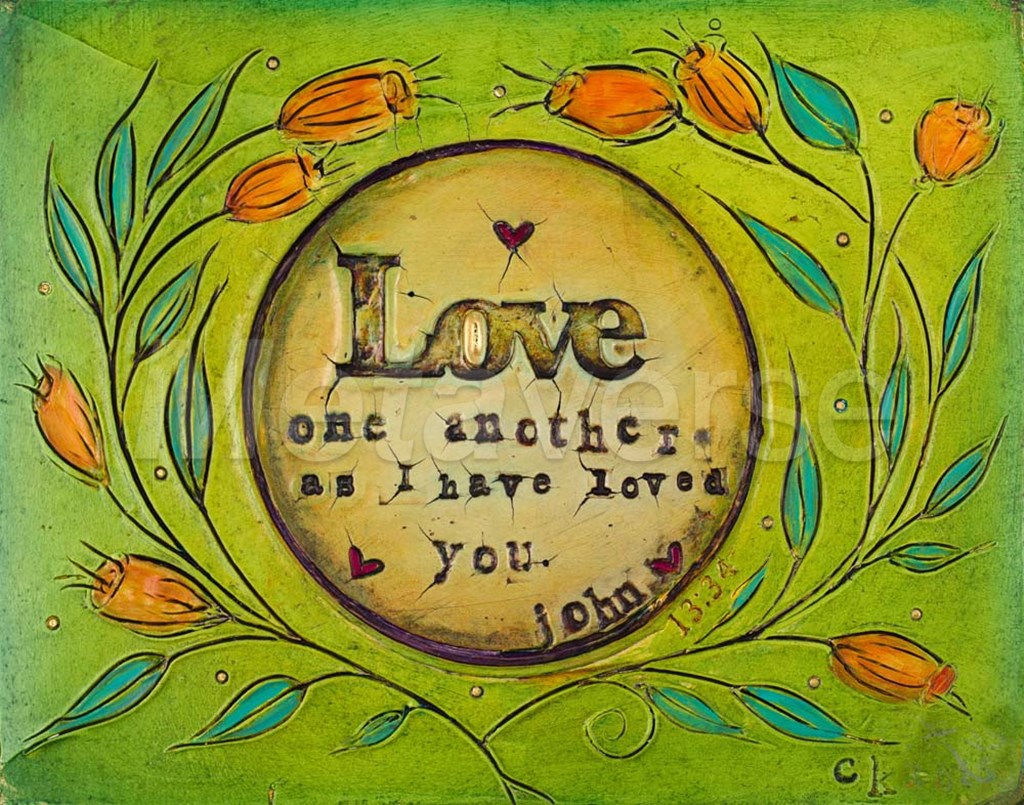 Love
one another.
as I have loved
you.
john
13:34
ck
Metaverse